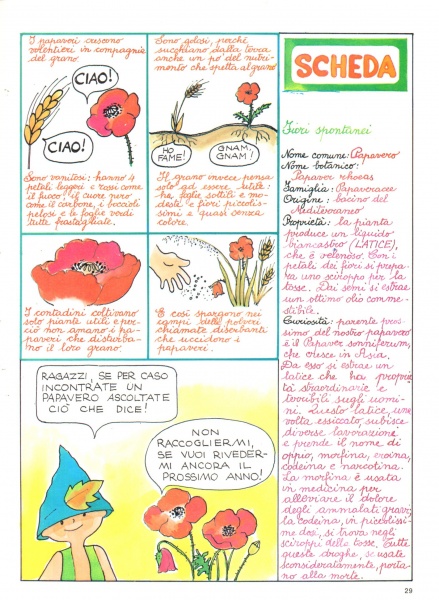 I papaveri crescono
volentieri in compagnia
del grano
CIAO!
CIAO!
Sono golosi, perché
succhiano dalla terra
anche un po' del nutri-
mento che spetta al grano
HO
FAME!
GNAM,
GNAM!
Sono vanitosi: hanno 4
petali leggeri e rossi come
il fuoco, il cuore nero
come il carbone, i boccioli
pelosi e le foglie verdi
tutte frastagliate.
Il grano invece pensa
solo ad essere utile:
ha foglie sottili e mo-
deste e fiori piccolis-
simi e quasi senza
colore.
I contadini coltivano
solo piante utili e per-
ciò non amano i pa-
paveri che disturba-
no il loro grano.
E così spargono nei
campi delle polveri
chiamate diserbanti
che uccidono i
papaveri.
RAGAZZI, SE PER CASO
INCONTRATE UN
PAPAVERO ASCOLTATE
CIÒ CHE DICE!
NON
RACCOGLIERMI,
SE VUOI RIVEDER-
MI ANCORA IL
PROSSIMO ANNO!
SCHEDA
Fiori spontanei
Nome comune: Papavero
Nome botanico:
Papaver rhoeas
Famiglia: Papaveracee
Origine: bacino del
Mediterraneo
Proprietà: la pianta
produce un liquido
biancastro (LATICE),
che è velenoso. Con i
petali dei fiori si prepa-
ra uno sciroppo per la
tosse. Dai semi si estrae
un ottimo olio comme-
stibile.
Curiosità: parente pros
simo del nostro papavero
è il Papaver somniferum,
che cresce in Asia.
Da esso si estrae un
latice che ha proprie
tà straordinarie e
terribili sugli uomi-
ni. Questo latice, una
volta essiccato, subisce
diverse lavorazioni
e prende il nome di
oppio, morfina, eroina,
codeina e narcotina.
La morfina è usata
in medicina per
alleviare il dolore
degli ammalati gravi;
la codeina, in piccolissi-
me dosi, si trova negli
sciroppi della tosse. Tutte
queste droghe, se usate
sconsideratamente, porta-
no alla morte.
29